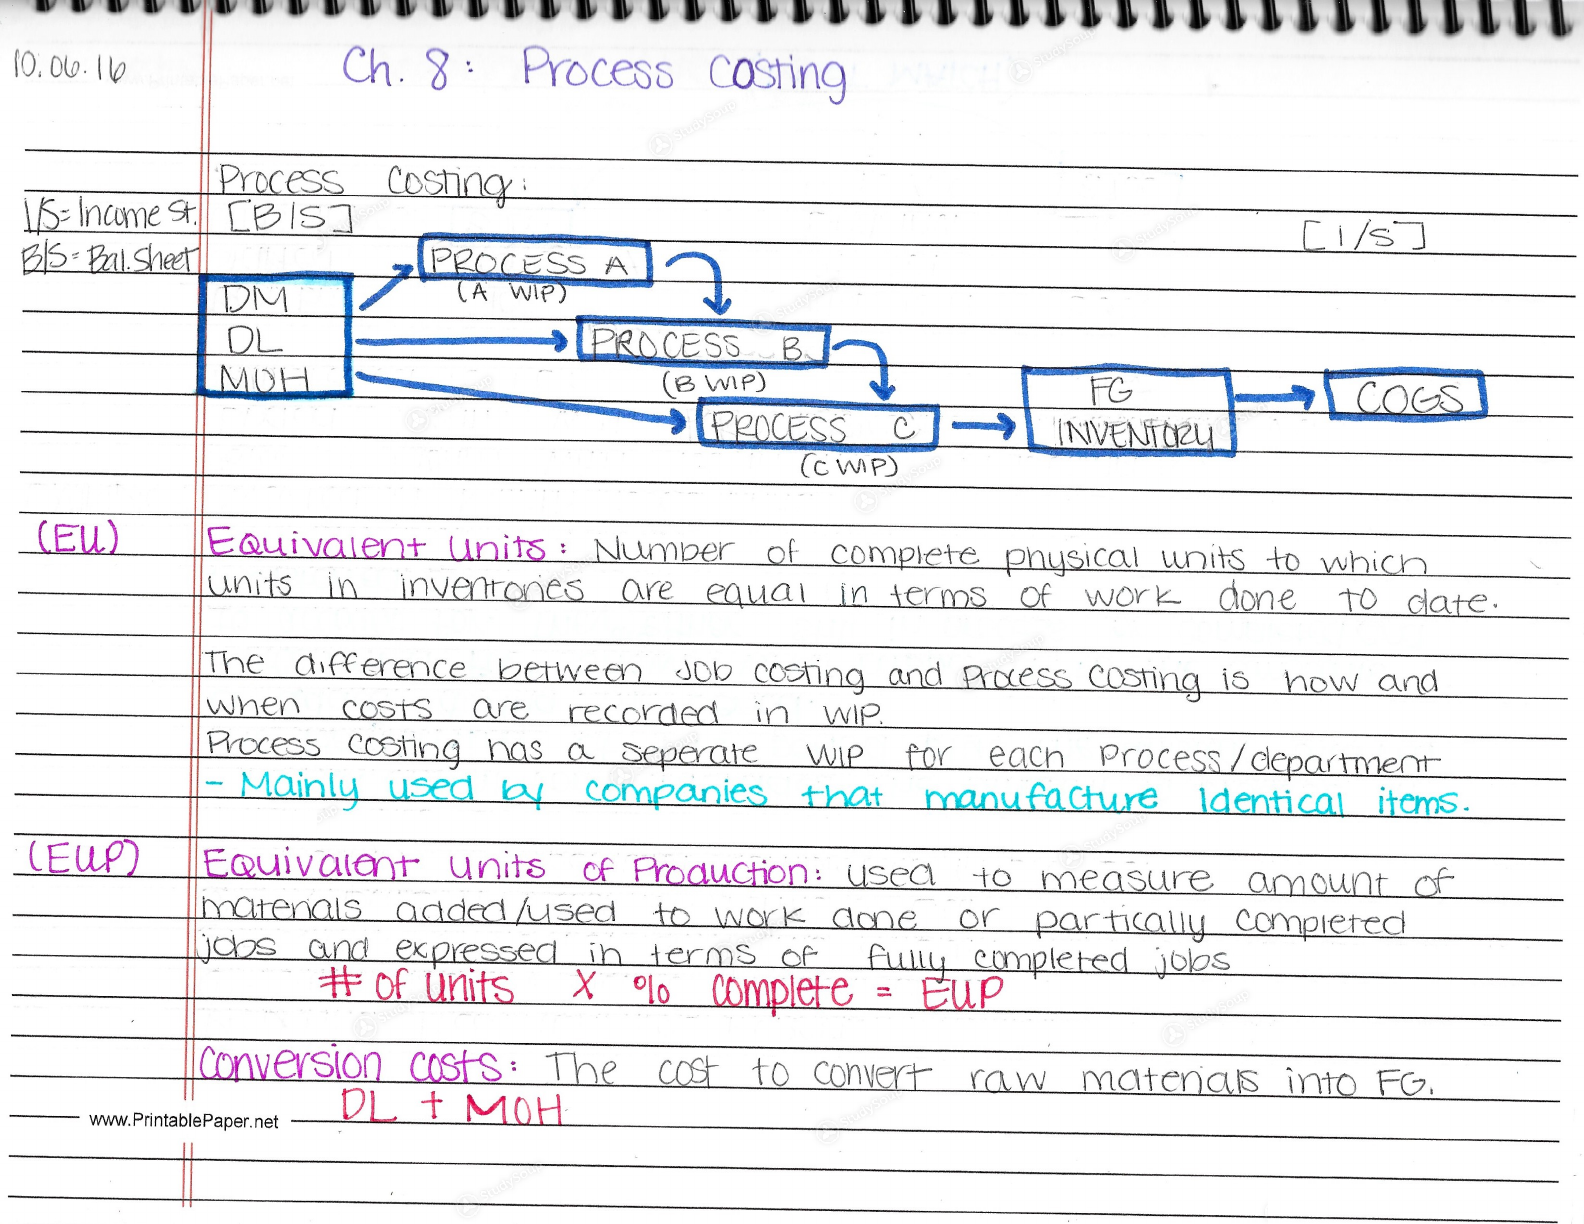 10.06.16
Ch. 8: Process Costing
Process Costing:
I/S= Income St.
[B/S]
[I/S]
B/S= Bal. Sheet
PROCESS A
(A WIP)
DM
DL
MOH
PROCESS B
(B WIP)
PROCESS C
(C WIP)
FG
INVENTORY
COGS
(EU)
Equivalent units: Number of complete physical units to which
units in inventories are equal in terms of work done to date.
The difference between Job costing and Process costing is how and
when costs are recorded in WIP.
Process costing has a seperate WIP for each Process/department
- Mainly used by companies that manufacture Identical items.
(EUP)
Equivalent units of Production: used to measure amount of
materials added/used to work done or partically completed
jobs and expressed in terms of fully completed jobs
# of units X % complete = EUP
Conversion costs: The cost to convert raw materials into FG.
DL + MOH
www.PrintablePaper.net
StudySoup